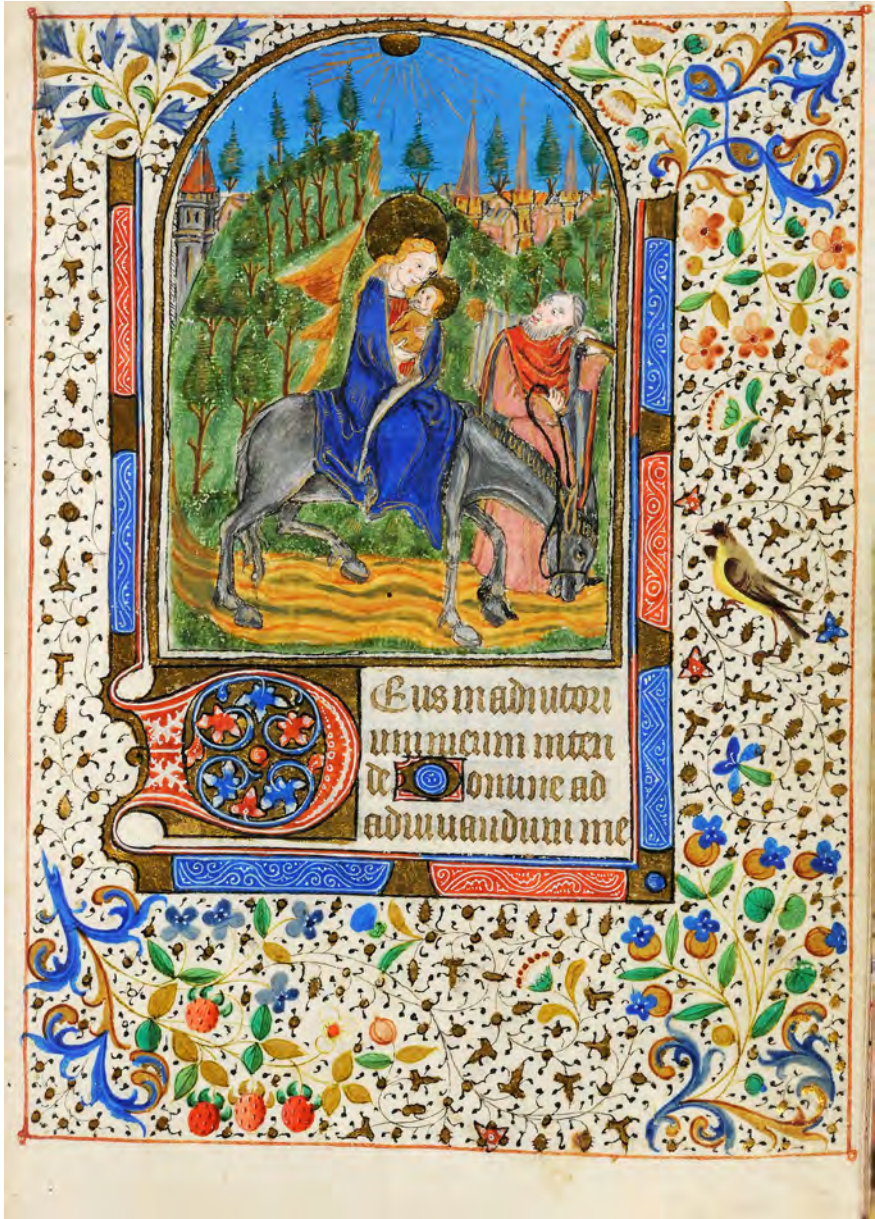 Deus in adiutori
um meum inten
de Domine ad
adiuuandum me